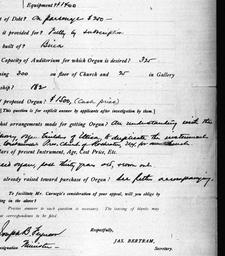 Equipment? $1400
of Debt? On parsonage $200—
is provided for? Partly by subscription
built of? Brick
Capacity of Auditorium for which Organ is desired? 325
ing 300 on floor of Church and 25 in Gallery
ship? 182
proposed Organ? $1500, (Cash price)
[This question is for explicit answer by applicants after investigation by them.]
hat arrangements made for getting Organ? An understanding with the
organ builders of Utica, to duplicate the instrument
Church of Rochester, for
ars of present Instrument, Age, Cost Price, Etc.
reed organ, past thirty years old, worn out
already raised toward purchase of Organ? See letter accompanying.
To facilitate Mr. Carnegie's consideration of your appeal, will you oblige by
ing in the above?
Precise answer to each question is necessary. The issuing of blanks may
correspondence to be filed.
Respectfully,
Joseph B. Ferguson
JAS. BERTRAM,
esignation Minister
Secretary.